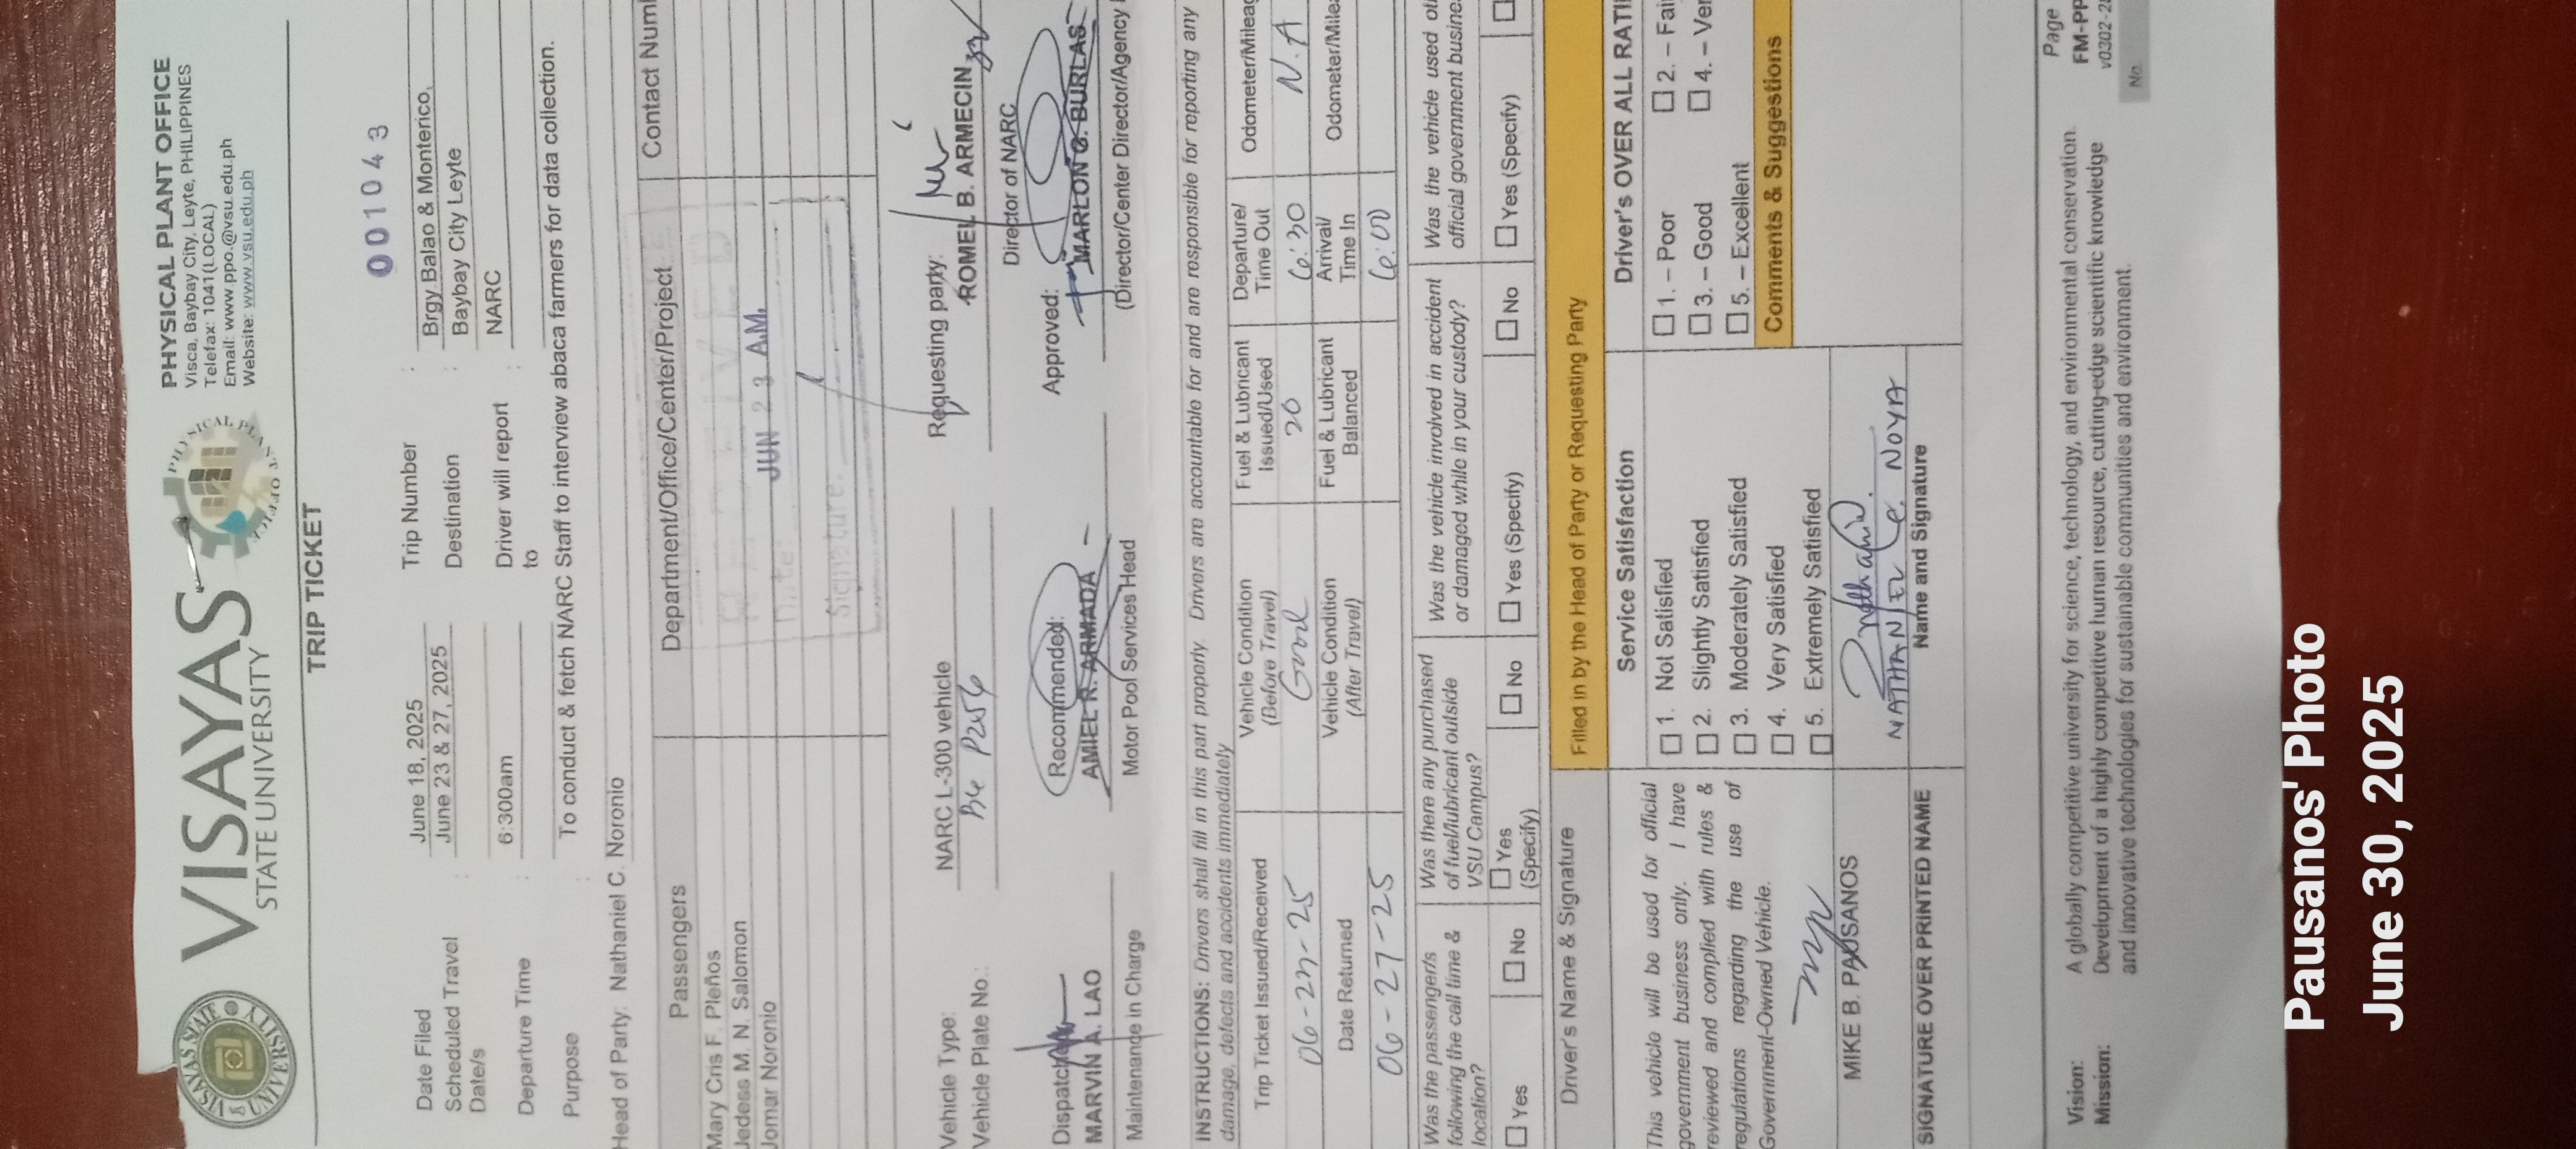 VISAYAS
STATE UNIVERSITY
PHYSICAL PLANT OFFICE
Visca, Baybay City, Leyte, PHILIPPINES
Telefax: 1041(LOCAL)
Email: www.ppo.@vsu.edu.ph
Website: www.vsu.edu.ph
TRIP TICKET
001043
Date Filed June 18, 2025 Trip Number : Brgy Balao & Monterico,
Scheduled Travel : June 23 & 27, 2025 Destination : Baybay City Leyte
Date/s
Departure Time : 6:300am Driver will report to : NARC
Purpose : To conduct & fetch NARC Staff to interview abaca farmers for data collection.
Head of Party: Nathaniel C. Noronio
Passengers Department/Office/Center/Project Contact Num
Mary Cris F. Pleños
Jedess M. N. Salomon
Jomar Noronio
Date: JUN 23 A.M.
Signature:
Vehicle Type: NARC L-300 vehicle
Vehicle Plate No.:
Requesting party:
ROMEL B. ARMECIN
Director of NARC
Dispatch
MARVIN A. LAO
Maintenance in Charge
Recommended:
AMIEL R. ARMADA
Motor Pool Services Head
Approved:
MARLON G. BURLAS
(Director/Center Director/Agency
INSTRUCTIONS: Drivers shall fill in this part properly. Drivers are accountable for and are responsible for reporting any
damage, defects and accidents immediately
Trip Ticket Issued/Received Vehicle Condition (Before Travel) Fuel & Lubricant Issued/Used Departure/ Time Out Odometer/Mileag
Good 20 6:30 N.A
Date Returned Vehicle Condition (After Travel) Fuel & Lubricant Balanced Arrival/ Time In Odometer/Mile
06-27-25 6:00
Was the passenger/s following the call time & location?
Was there any purchased of fuel/lubricant outside VSU Campus?
Was the vehicle involved in accident or damaged while in your custody?
Was the vehicle used o official government busine
☐ Yes ☐ No ☐ Yes (Specify) ☐ No ☐ Yes (Specify) ☐ No ☐ Yes (Specify)
Driver's Name & Signature
Filled in by the Head of Party or Requesting Party
This vehicle will be used for official
government business only. I have
reviewed and complied with rules &
regulations regarding the use of
Government-Owned Vehicle.
MIKE B. PAUSANOS
SIGNATURE OVER PRINTED NAME
Service Satisfaction
☐ 1. Not Satisfied
☐ 2. Slightly Satisfied
☐ 3. Moderately Satisfied
☐ 4. Very Satisfied
☐ 5. Extremely Satisfied
Name and Signature
Driver's OVER ALL RATI
☐ 1. – Poor ☐ 2. – Fai
☐ 3. – Good ☐ 4. – Ver
☐ 5. – Excellent
Comments & Suggestions
Vision: A globally competitive university for science, technology, and environmental conservation.
Mission: Development of a highly competitive human resource, cutting-edge scientific knowledge
and innovative technologies for sustainable communities and environment.
Page
FM-PP
v0302-2
No.
Pausanos' Photo
June 30, 2025